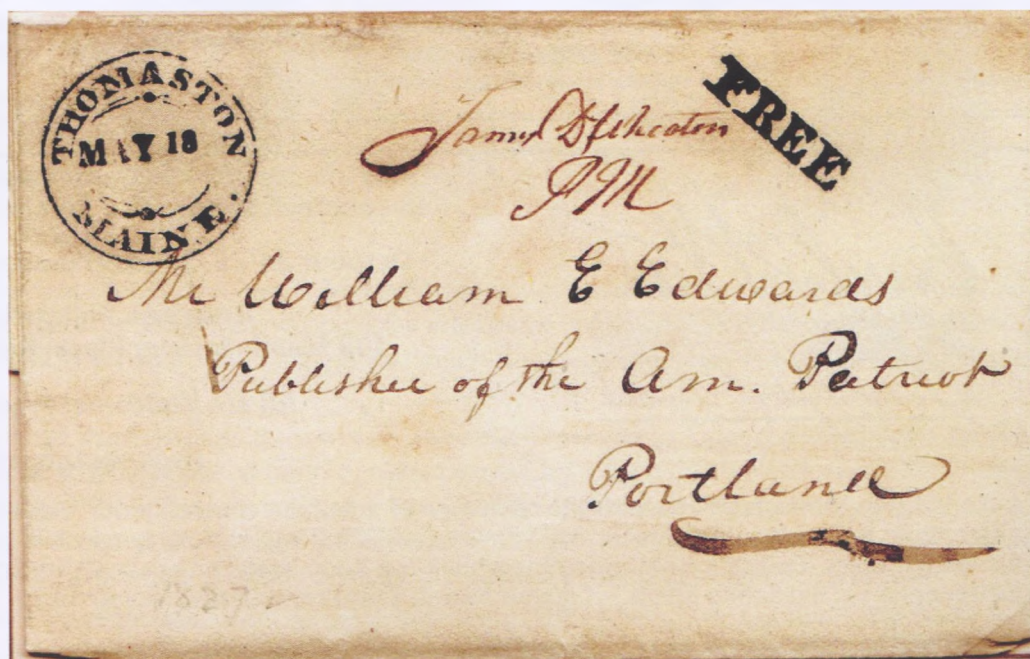 THOMASTON
MAY 18
MAINE.
FREE
James D Wheaton
PM
Mr William E Edwards
Publisher of the Am. Patriot
Portland
1827